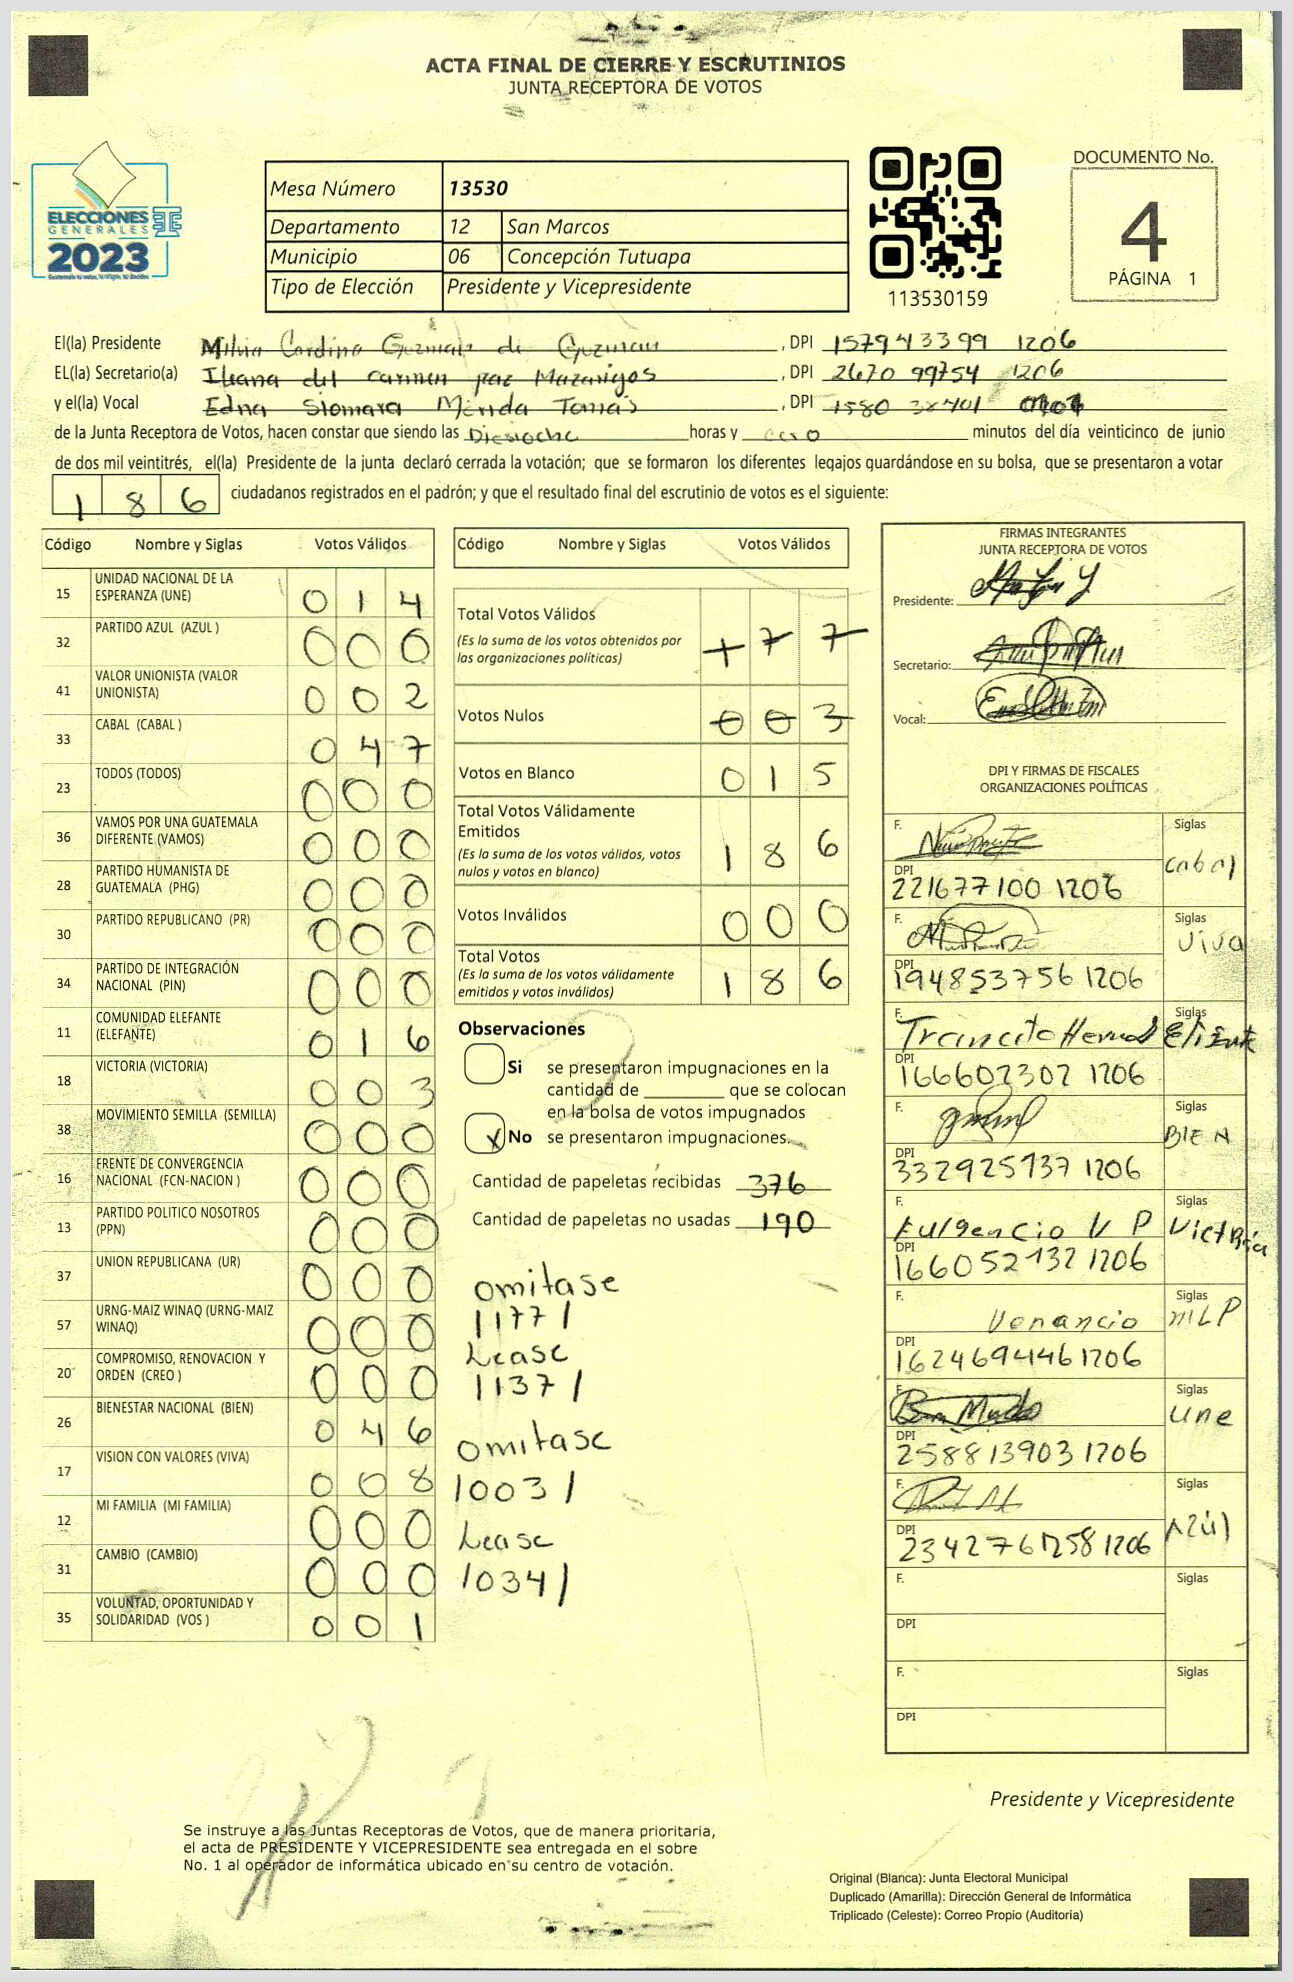 ACTA FINAL DE CIERRE Y ESCRUTINIOS
JUNTA RECEPTORA DE VOTOS
ELECCIONES
GENERALES
2023
Mesa Número 13530
Departamento 12 San Marcos
Municipio 06 Concepción Tutuapa
Tipo de Elección Presidente y Vicepresidente
113530159
DOCUMENTO No.
4
PÁGINA 1
El(la) Presidente Milvia Cardina Guzman de Guzman, DPI 157943399 1206
EL(la) Secretario(a) Ileana del carmen paz Mazarigos, DPI 2670 99754 1206
y el(la) Vocal Edna Siomara Merida Tomas, DPI 1580 38401
de la Junta Receptora de Votos, hacen constar que siendo las Diesioche horas y cero minutos del día veinticinco de junio
de dos mil veintitrés, el(la) Presidente de la junta declaró cerrada la votación; que se formaron los diferentes legajos guardándose en su bolsa, que se presentaron a votar
186 ciudadanos registrados en el padrón; y que el resultado final del escrutinio de votos es el siguiente:
Código Nombre y Siglas Votos Válidos
15 UNIDAD NACIONAL DE LA ESPERANZA (UNE) 0 1 4
32 PARTIDO AZUL (AZUL ) 0 0 0
41 VALOR UNIONISTA (VALOR UNIONISTA) 0 0 2
33 CABAL (CABAL ) 0 4 7
23 TODOS (TODOS) 0 0 0
36 VAMOS POR UNA GUATEMALA DIFERENTE (VAMOS) 0 0 0
28 PARTIDO HUMANISTA DE GUATEMALA (PHG) 0 0 0
30 PARTIDO REPUBLICANO (PR) 0 0 0
34 PARTIDO DE INTEGRACIÓN NACIONAL (PIN) 0 0 0
11 COMUNIDAD ELEFANTE (ELEFANTE) 0 1 6
18 VICTORIA (VICTORIA) 0 0 3
38 MOVIMIENTO SEMILLA (SEMILLA) 0 0 0
16 FRENTE DE CONVERGENCIA NACIONAL (FCN-NACION ) 0 0 0
13 PARTIDO POLITICO NOSOTROS (PPN) 0 0 0
37 UNION REPUBLICANA (UR) 0 0 0
57 URNG-MAIZ WINAQ (URNG-MAIZ WINAQ) 0 0 0
20 COMPROMISO, RENOVACION Y ORDEN (CREO ) 0 0 0
26 BIENESTAR NACIONAL (BIEN) 0 4 6
17 VISION CON VALORES (VIVA) 0 0 8
12 MI FAMILIA (MI FAMILIA) 0 0 0
31 CAMBIO (CAMBIO) 0 0 0
35 VOLUNTAD, OPORTUNIDAD Y SOLIDARIDAD (VOS ) 0 0 1
Código Nombre y Siglas Votos Válidos
Total Votos Válidos 1 7 7
(Es la suma de los votos obtenidos por
las organizaciones políticas)
Votos Nulos 0 0 3
Votos en Blanco 0 1 5
Total Votos Válidamente
Emitidos 1 8 6
(Es la suma de los votos válidos, votos
nulos y votos en blanco)
Votos Inválidos 0 0 0
Total Votos 1 8 6
(Es la suma de los votos válidamente
emitidos y votos inválidos)
Observaciones
Si se presentaron impugnaciones en la
cantidad de ________ que se colocan
en la bolsa de votos impugnados
X No se presentaron impugnaciones.
Cantidad de papeletas recibidas 376
Cantidad de papeletas no usadas 190
omitase
1177/
Lease
1137/
omitase
1003/
Lease
1034/
FIRMAS INTEGRANTES
JUNTA RECEPTORA DE VOTOS
Presidente:
Secretario:
Vocal:
DPI Y FIRMAS DE FISCALES
ORGANIZACIONES POLÍTICAS
F. Siglas
cabal
DPI
221677100 1206
F. Siglas
Viva
DPI
194853756 1206
F. Siglas
Trancito
DPI
166602302 1206
F. Siglas
BIEN
DPI
332925137 1206
F. Siglas
Fulgencio V P Victoria
DPI
166052132 1206
F. Siglas
Venancio MLP
DPI
162469446 1206
F. Siglas
une
DPI
258813903 1206
F. Siglas
Azúl
DPI
2342761258 1206
F. Siglas
DPI
F. Siglas
DPI
Presidente y Vicepresidente
Se instruye a las Juntas Receptoras de Votos, que de manera prioritaria,
el acta de PRESIDENTE Y VICEPRESIDENTE sea entregada en el sobre
No. 1 al operador de informática ubicado en su centro de votación.
Original (Blanca): Junta Electoral Municipal
Duplicado (Amarilla): Dirección General de Informática
Triplicado (Celeste): Correo Propio (Auditoría)